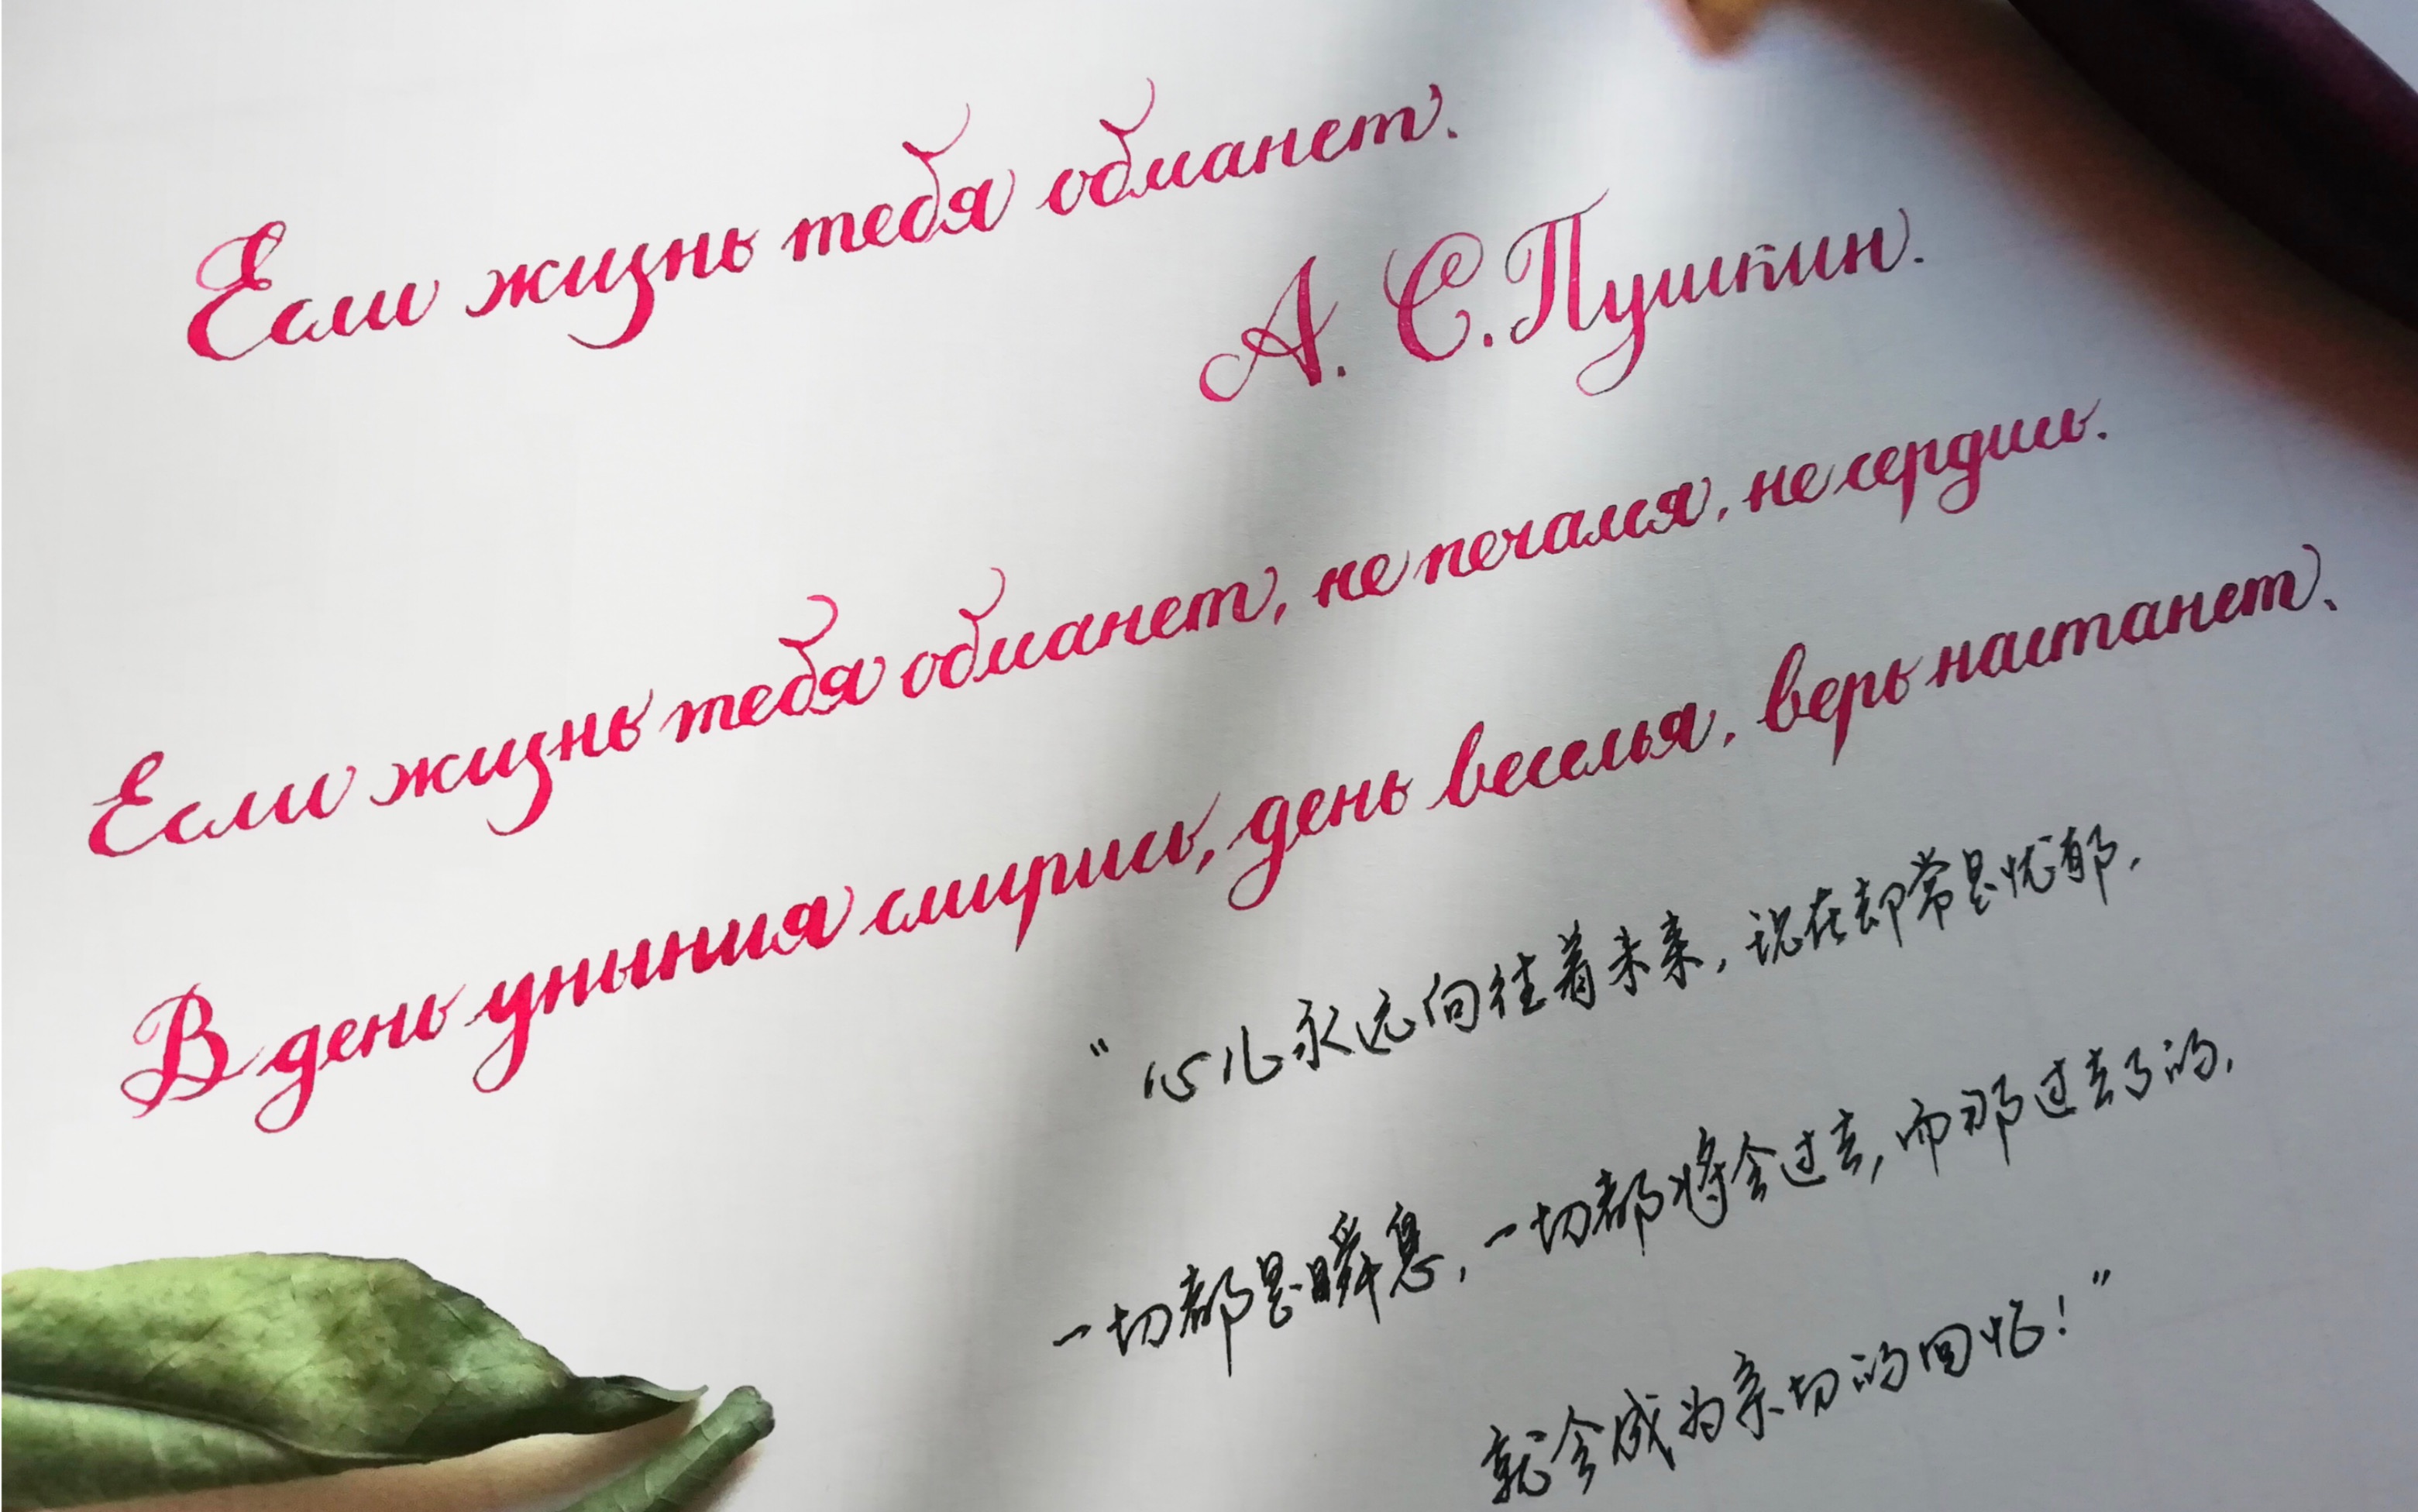 Если жизнь тебя обманет.
А. С. Пушкин.
Если жизнь тебя обманет, не печалься, не сердись.
В день уныния смирись, день веселья, верь настанет.
"心儿永远向往着未来,现在却常是忧郁,
一切都是瞬息,一切都将会过去,而那过去了的,
就会成为亲切的回忆!"